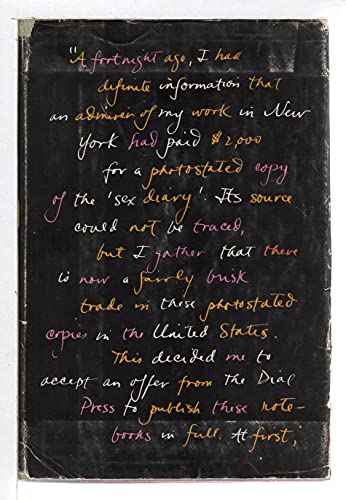 "A fortnight ago, I had
definite information that
an admirer of my work in New
York had paid $2,000
for a photostated copy
of the 'sex diary'. Its source
could not be traced,
but I gather that there
is now a fairly brisk
trade in these photostated
copies in the United States.
This decided me to
accept an offer from The Dial
Press to publish these note-
books in full. At first,